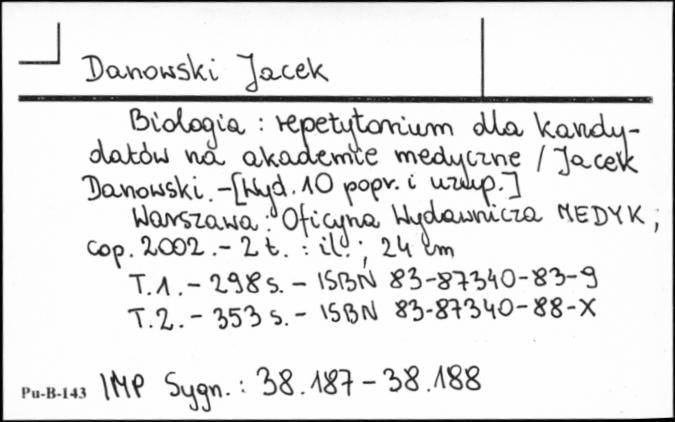 Danowski Jacek
Biologia : repetytorium dla kandy-
datów na akademie medyczne / Jacek
Danowski. - [Wyd. 10 popr. i uzup.]
Warszawa : Oficyna Wydawnicza MEDYK ;
cop. 2002. - 2 t. : il. ; 24 cm
T.1. - 298 s. - ISBN 83-87340-83-9
T.2. - 353 s. - ISBN 83-87340-88-X
Pu-B-143 IMP Sygn. : 38.187 - 38.188